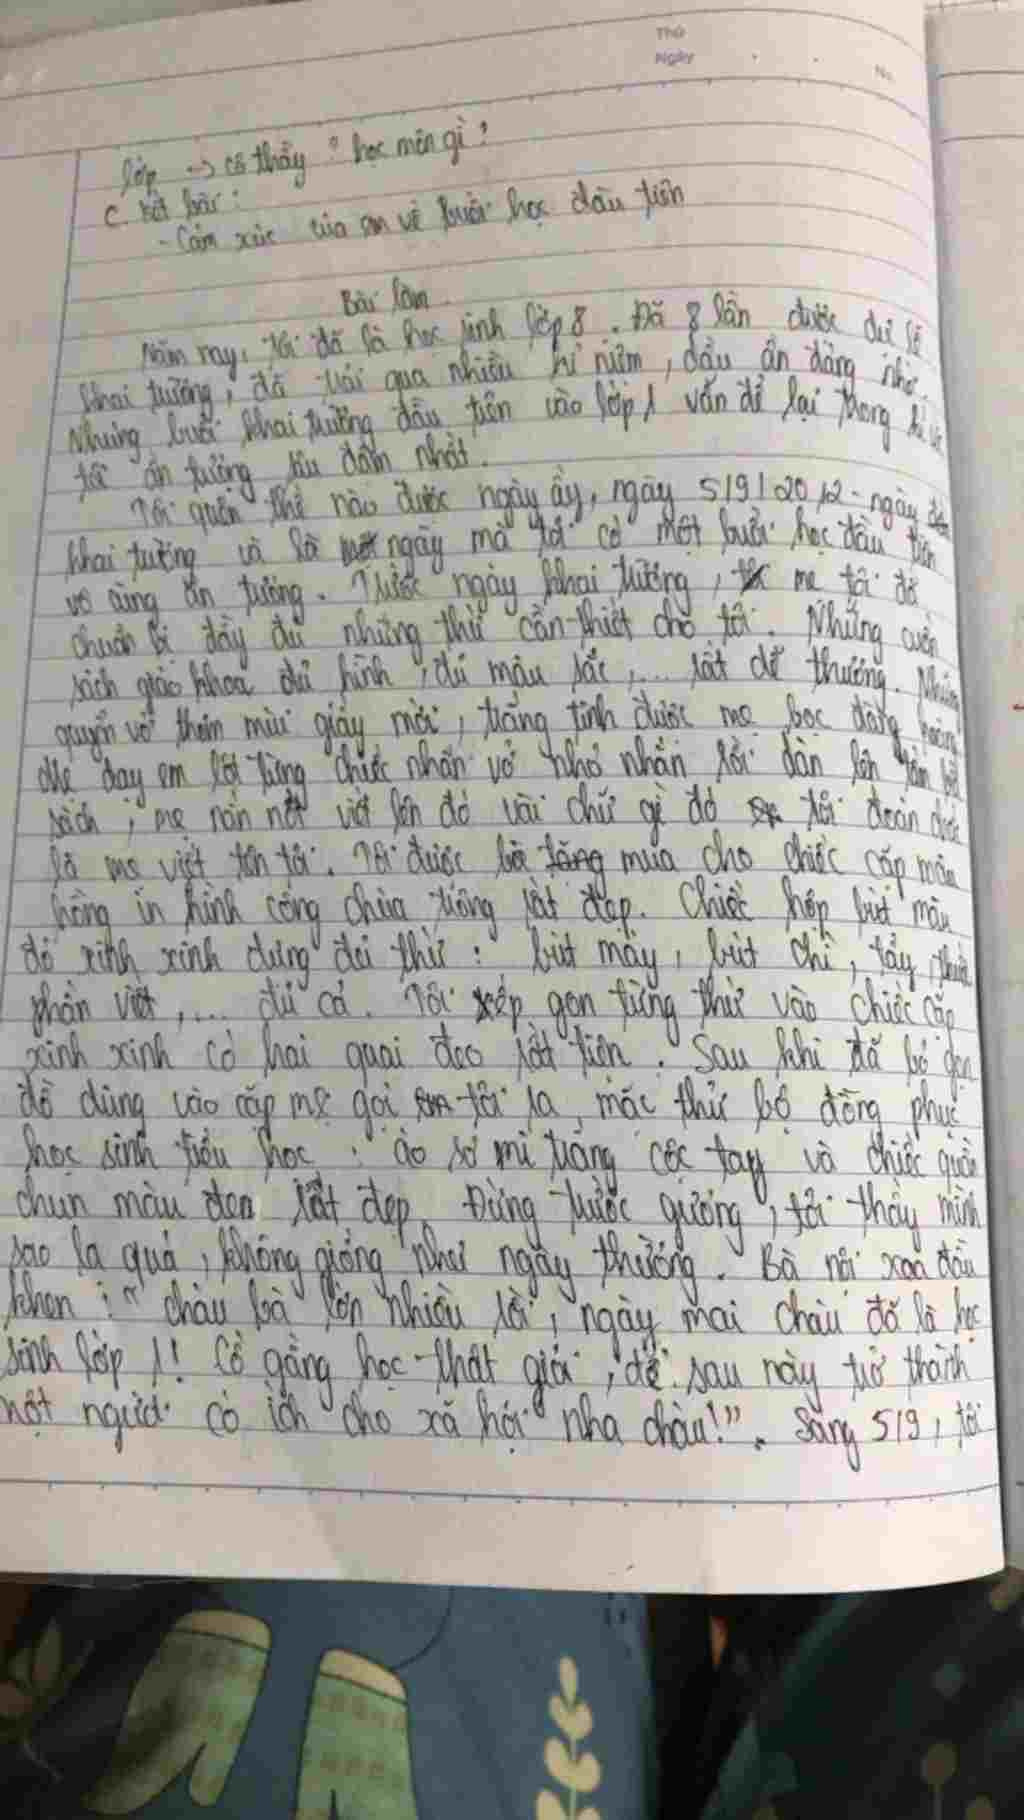 Thứ
Ngày
No.
lớp → cô thầy " học môn gì ?
C. Kết bài :
- Cảm xúc của em về buổi học đầu tiên
Bài làm
Năm nay, tôi đã là học sinh lớp 8. Đã 8 lần được dự lễ
khai trường, đã trải qua nhiều kỉ niệm, dấu ấn đáng nhớ.
Nhưng buổi khai trường đầu tiên vào lớp 1 vẫn để lại trong kí ức
tôi ấn tượng sâu đậm nhất.
Tôi quên thế nào được ngày ấy, ngày 5/9/2012 - ngày
khai trường và là ngày mà tôi có một buổi học đầu tiên
vô cùng ấn tượng. Trước ngày khai trường, mẹ tôi đã
chuẩn bị đầy đủ những thứ cần thiết cho tôi. Những cuốn
sách giáo khoa đủ hình, đủ màu sắc,... rất dễ thương. Những
quyển vở thơm mùi giấy mới, trắng tinh được mẹ bọc đàng hoàng.
Mẹ dạy em lột từng chiếc nhãn vở nhỏ nhắn rồi dán lên tấm bìa
sách, mẹ nắn nót viết lên đó vài chữ gì đó tôi đoán được
là mẹ viết tên tôi. Tôi được bà tặng mua cho chiếc cặp màu
hồng in hình công chúa trông rất đẹp. Chiếc hộp bút màu
đỏ xinh xinh đựng đủ thứ : bút máy, bút chì, tẩy, thước
phấn viết,... đủ cả. Tôi xếp gọn từng thứ vào chiếc cặp
xinh xinh có hai quai đeo rất tiện. Sau khi đã bỏ gọn
đồ dùng vào cặp mẹ gọi tôi ra, mặc thử bộ đồng phục
học sinh tiểu học : áo sơ mi trắng cộc tay và chiếc quần
chun màu đen rất đẹp. Đứng trước gương, tôi thấy mình
sao lạ quá, không giống như ngày thường. Bà nội xoa đầu
khen : " cháu bà lớn nhiều rồi, ngày mai cháu đã là học
sinh lớp 1! Cố gắng học thật giỏi, để sau này trở thành
một người có ích cho xã hội nha cháu!". Sáng 5/9, tôi